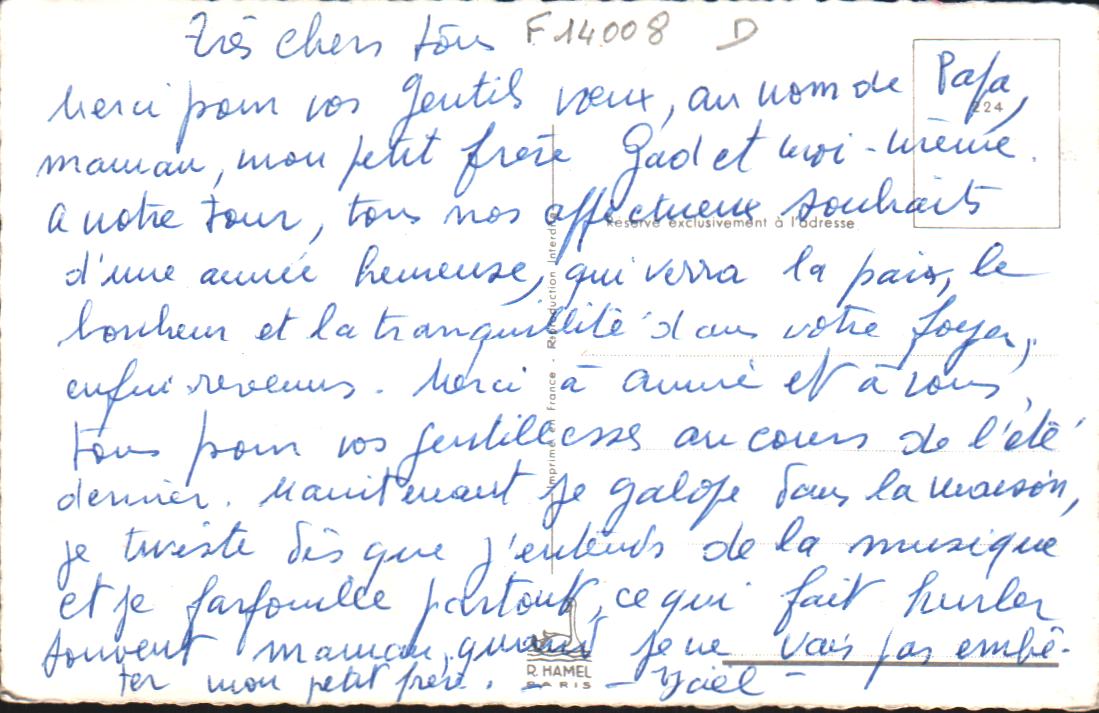 Très chers tous F14008 D
Merci pour vos gentils vœux, au nom de Papa,
224
maman, mon petit frère Gad et moi-même.
A notre tour, tous nos affectueux souhaits
Réservé exclusivement à l'adresse
d'une année heureuse, qui verra la paix, le
bonheur et la tranquillité dans votre foyer,
enfin revenus. Merci à Annie et à vous
tous pour vos gentillesses au cours de l'été
dernier. Maintenant je galope dans la maison,
je twiste dès que j'entends de la musique
et je farfouille partout, ce qui fait hurler
souvent maman, quand je ne vais pas embê-
ter mon petit frère. - Yaël -
Imprimé en France - Reproduction Interdite
R. HAMEL
PARIS